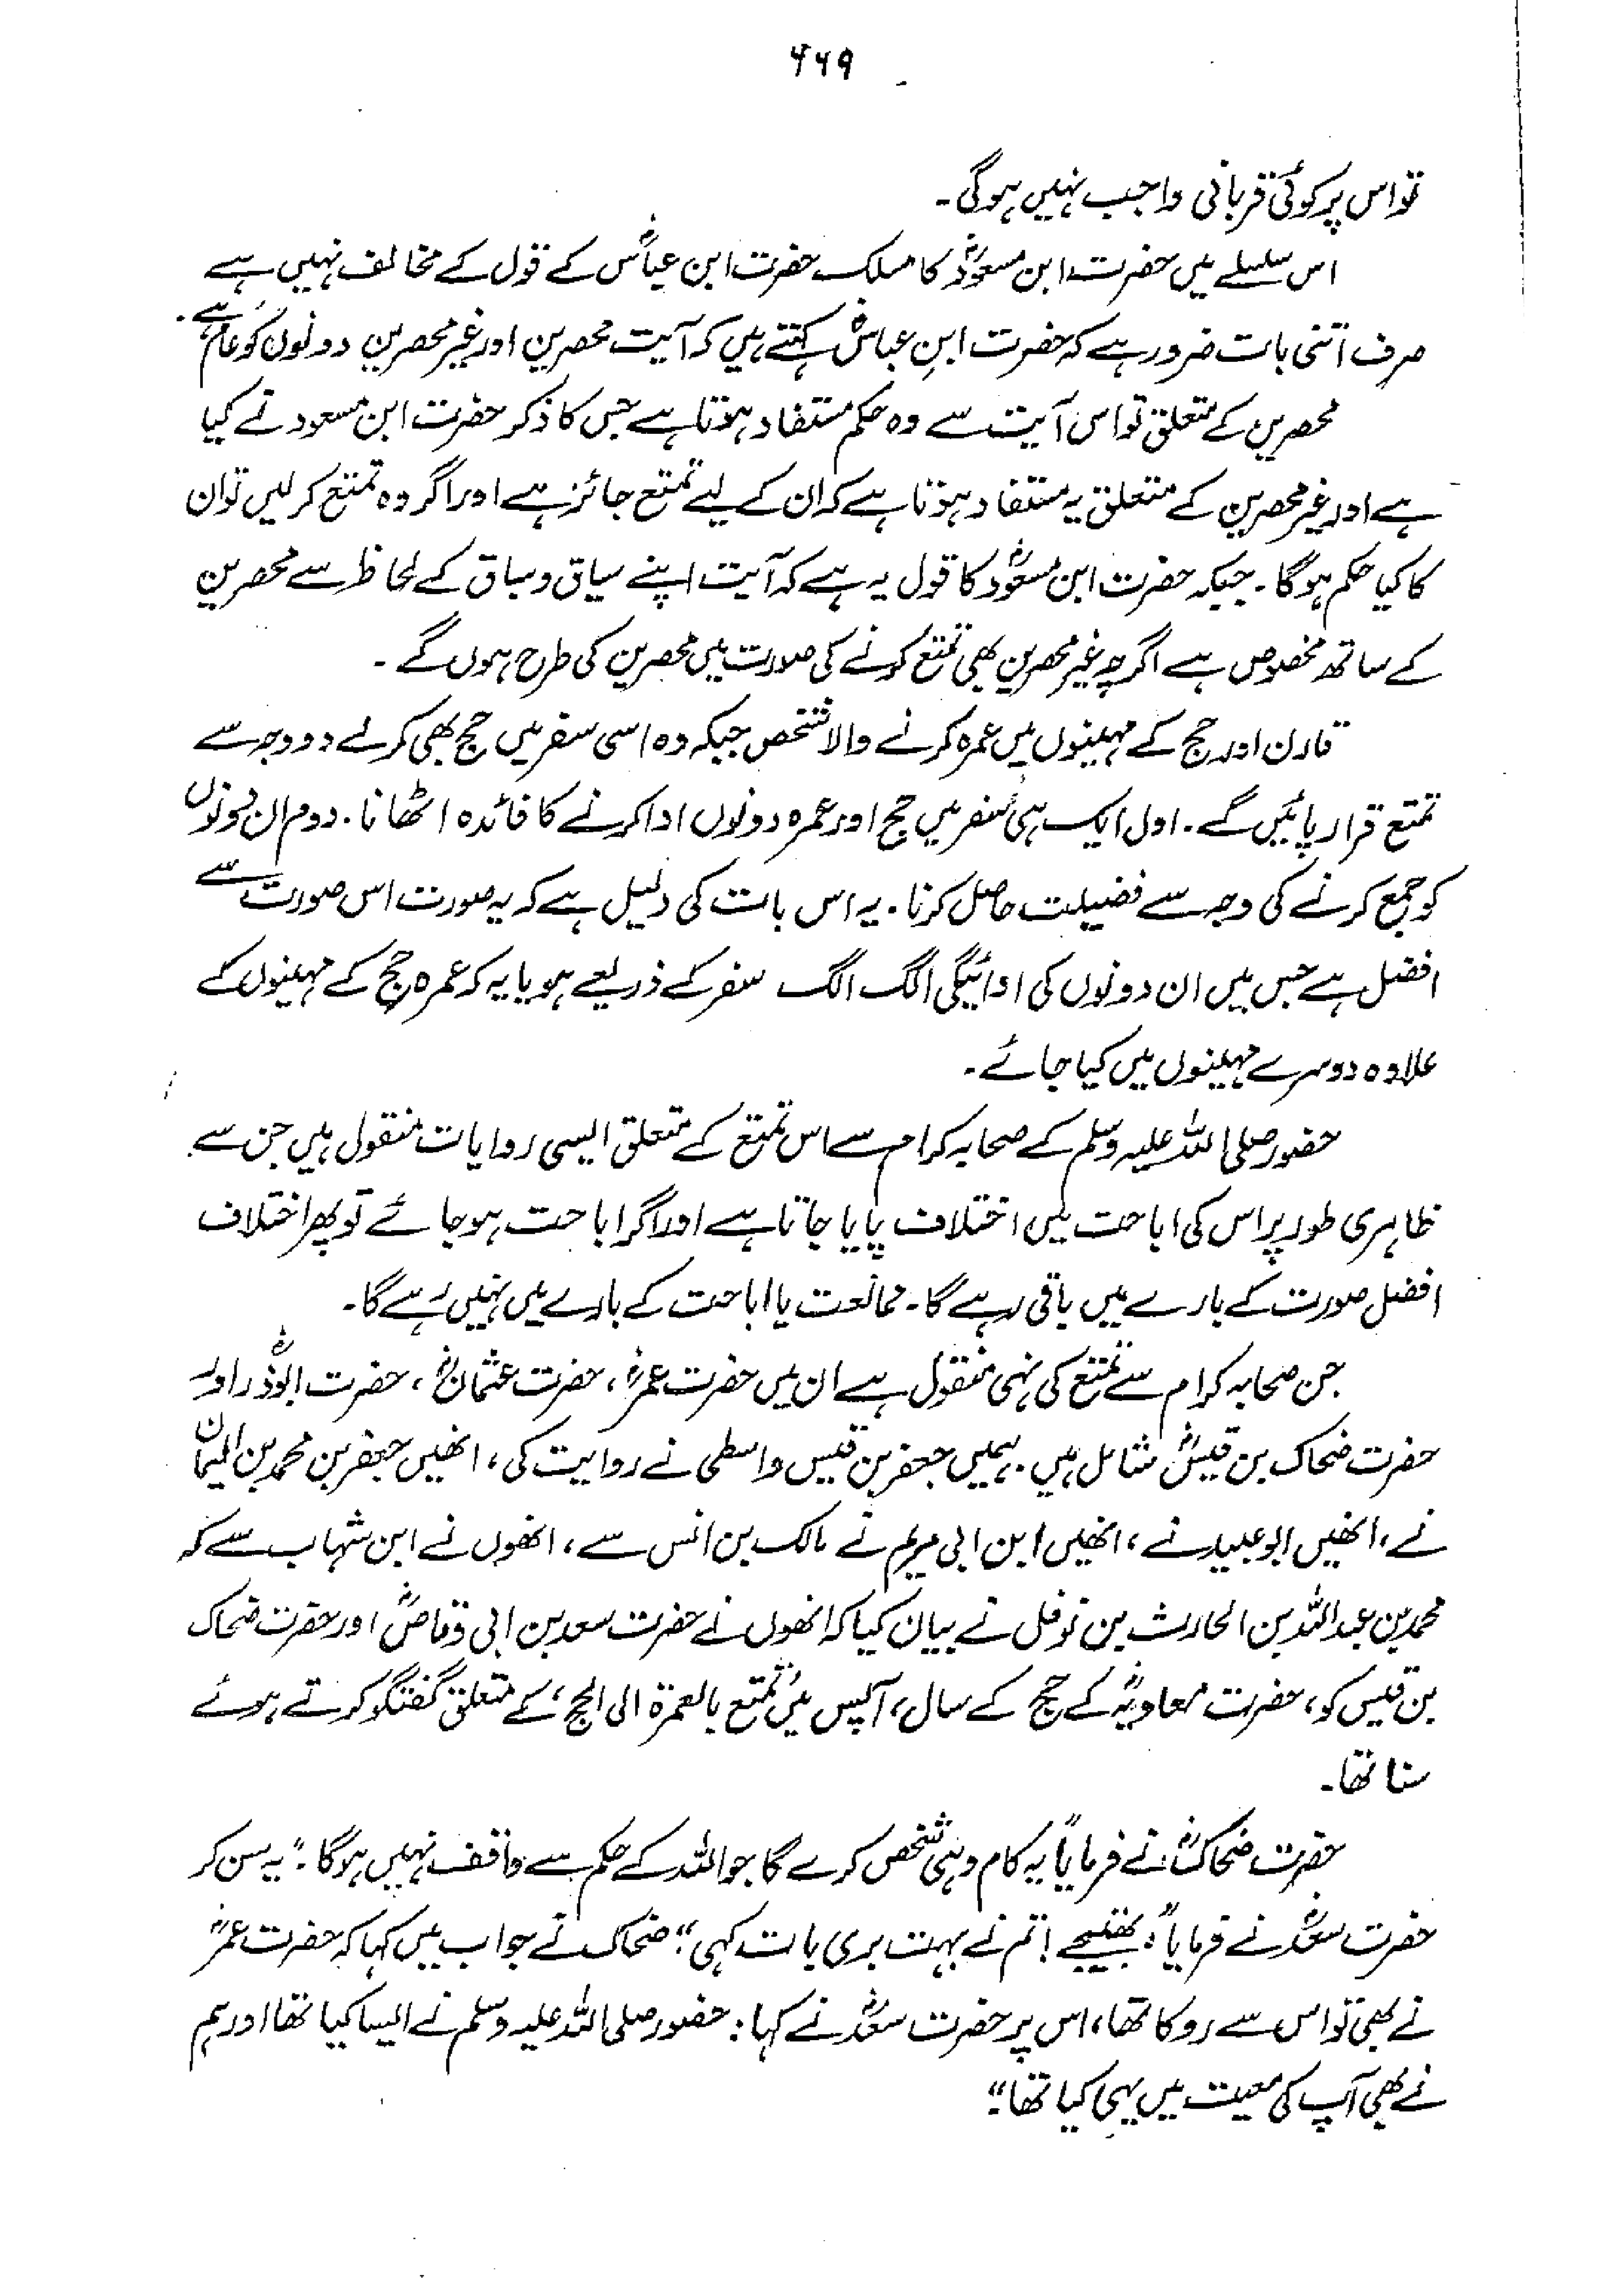 ۶۶۹
تو اس پر کوئی قربانی واجب نہیں ہوگی۔
اس سلسلے میں حضرت ابن مسعودؓ کا مسلک حضرت ابن عباسؓ کے قول کے مخالف نہیں ہے
صرف اتنی بات ضرور ہے کہ حضرت ابنِ عباسؓ کہتے ہیں کہ آیت محصرین اور غیر محصرین دونوں کو عام ہے۔
محصرین کے متعلق تو اس آیت سے وہ حکم مستفاد ہوتا ہے جس کا ذکر حضرت ابن مسعود نے کیا
ہے اور غیر محصرین کے متعلق یہ مستفاد ہوتا ہے کہ ان کے لیے تمتع جائز ہے اور اگر وہ تمتع کر لیں تو ان
کا کیا حکم ہوگا۔ جبکہ حضرت ابن مسعودؓ کا قول یہ ہے کہ آیت اپنے سیاق و سباق کے لحاظ سے محصرین
کے ساتھ مخصوص ہے اگرچہ غیر محصرین بھی تمتع کرنے کی صورت میں محصرین کی طرح ہوں گے۔
قارن اور حج کے مہینوں میں عمرہ کرنے والا شخص جبکہ وہ اسی سفر میں حج بھی کرلے دو وجہ سے
تمتع قرار پائیں گے۔ اول ایک ہی سفر میں حج اور عمرہ دونوں ادا کرنے کا فائدہ اٹھانا۔ دوم ان دونوں
کو جمع کرنے کی وجہ سے فضیلت حاصل کرنا۔ یہ اس بات کی دلیل ہے کہ یہ صورت اس صورت سے
افضل ہے جس میں ان دونوں کی ادائیگی الگ الگ سفر کے ذریعے ہو یا یہ کہ عمرہ حج کے مہینوں کے
علاوہ دوسرے مہینوں میں کیا جائے۔
حضور صلی اللہ علیہ وسلم کے صحابہ کرام سے اس تمتع کے متعلق ایسی روایات منقول ہیں جن سے
ظاہری طور پر اس کی اباحت میں اختلاف پایا جاتا ہے اور اگر اباحت ہو جائے تو پھر اختلاف
افضل صورت کے بارے میں باقی رہے گا۔ ممانعت یا اباحت کے بارے میں نہیں رہے گا۔
جن صحابہ کرام سے تمتع کی نہی منقول ہے ان میں حضرت عمرؓ، حضرت عثمانؓ، حضرت ابوذرؓ اور
حضرت ضحاک بن قیسؓ شامل ہیں۔ ہمیں جعفر بن قیس واسطی نے روایت کی، انھیں جعفر بن محمد بن الیمان
نے، انھیں ابوعبید نے، انھیں ابن ابی مریم نے مالک بن انس سے، انھوں نے ابن شہاب سے کہ
محمد بن عبداللہ بن الحارث بن نوفل نے بیان کیا کہ انھوں نے حضرت سعد بن ابی وقاصؓ اور حضرت ضحاک
بن قیس کو، حضرت معاویہؓ کے حج کے سال، آپس میں ’تمتع بالعمرۃ الی الحج‘ کے متعلق گفتگو کرتے ہوئے
سنا تھا۔
حضرت ضحاکؓ نے فرمایا "یہ کام وہی شخص کرے گا جو اللہ کے حکم سے واقف نہیں ہوگا۔" یہ سن کر
حضرت سعدؓ نے فرمایا: "بھتیجے! تم نے بہت بری بات کہی"۔ ضحاک نے جواب میں کہا کہ حضرت عمرؓ
نے بھی تو اس سے روکا تھا، اس پر حضرت سعدؓ نے کہا: حضور صلی اللہ علیہ وسلم نے ایسا کیا تھا اور ہم
نے بھی آپ کی معیت میں یہی کیا تھا"۔